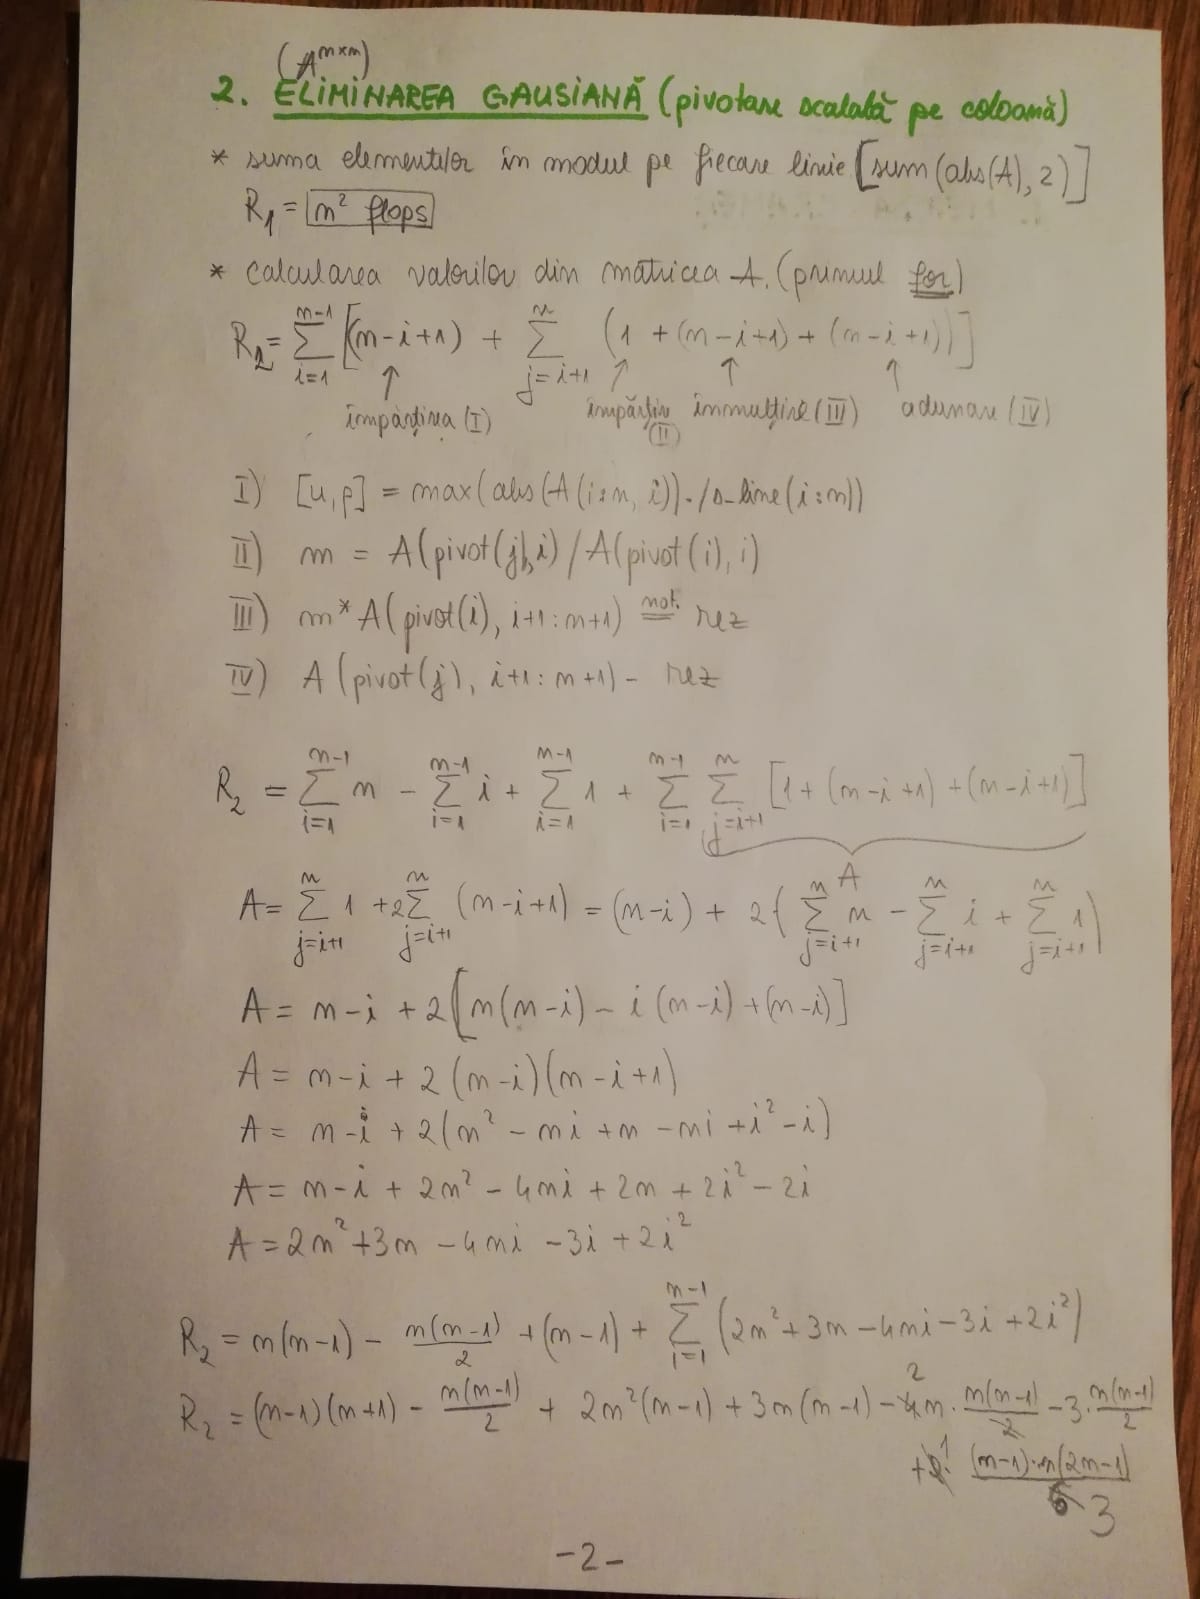 (A^{n×n})
2. ELIMINAREA GAUSIANĂ (pivotare scalată pe coloană)
* suma elementelor în modul pe fiecare linie [sum(abs(A), 2)]
R₁ = n² flops
* calcularea valorilor din matricea A. (primul for)
R₂ = ∑_{i=1}^{n-1} [(n-i+1) + ∑_{j=i+1}^{n} (1 + (n-i+1) + (n-i+1))]
↑ ↑ ↑ ↑
împărțirea (I) împărțire (II) înmulțire (III) adunare (IV)
I) [u,p] = max(abs(A(i:n, i))./s_line(i:n))
II) m = A(pivot(j),i) / A(pivot(i), i)
III) m*A(pivot(i), i+1:n+1) not. = rez
IV) A(pivot(j), i+1:n+1) - rez
R₂ = ∑_{i=1}^{n-1} n - ∑_{i=1}^{n-1} i + ∑_{i=1}^{n-1} 1 + ∑_{i=1}^{n-1} ∑_{j=i+1}^{n} [1 + (n-i+1) + (n-i+1)]
A
A = ∑_{j=i+1}^{n} 1 + 2∑_{j=i+1}^{n} (n-i+1) = (n-i) + 2(∑_{j=i+1}^{n} n - ∑_{j=i+1}^{n} i + ∑_{j=i+1}^{n} 1)
A = n-i + 2[n(n-i) - i(n-i) + (n-i)]
A = n-i + 2(n-i)(n-i+1)
A = n-i + 2(n² - ni + n - ni + i² - i)
A = n-i + 2n² - 4ni + 2n + 2i² - 2i
A = 2n² + 3n - 4ni - 3i + 2i²
R₂ = n(n-1) - n(n-1)/2 + (n-1) + ∑_{i=1}^{n-1} (2n² + 3n - 4ni - 3i + 2i²)
R₂ = (n-1)(n+1) - n(n-1)/2 + 2n²(n-1) + 3n(n-1) - 4 2 n · n(n-1)/2 - 3 · n(n-1)/2
+ 2 1 · (n-1)·n(2n-1)/6 3
-2-